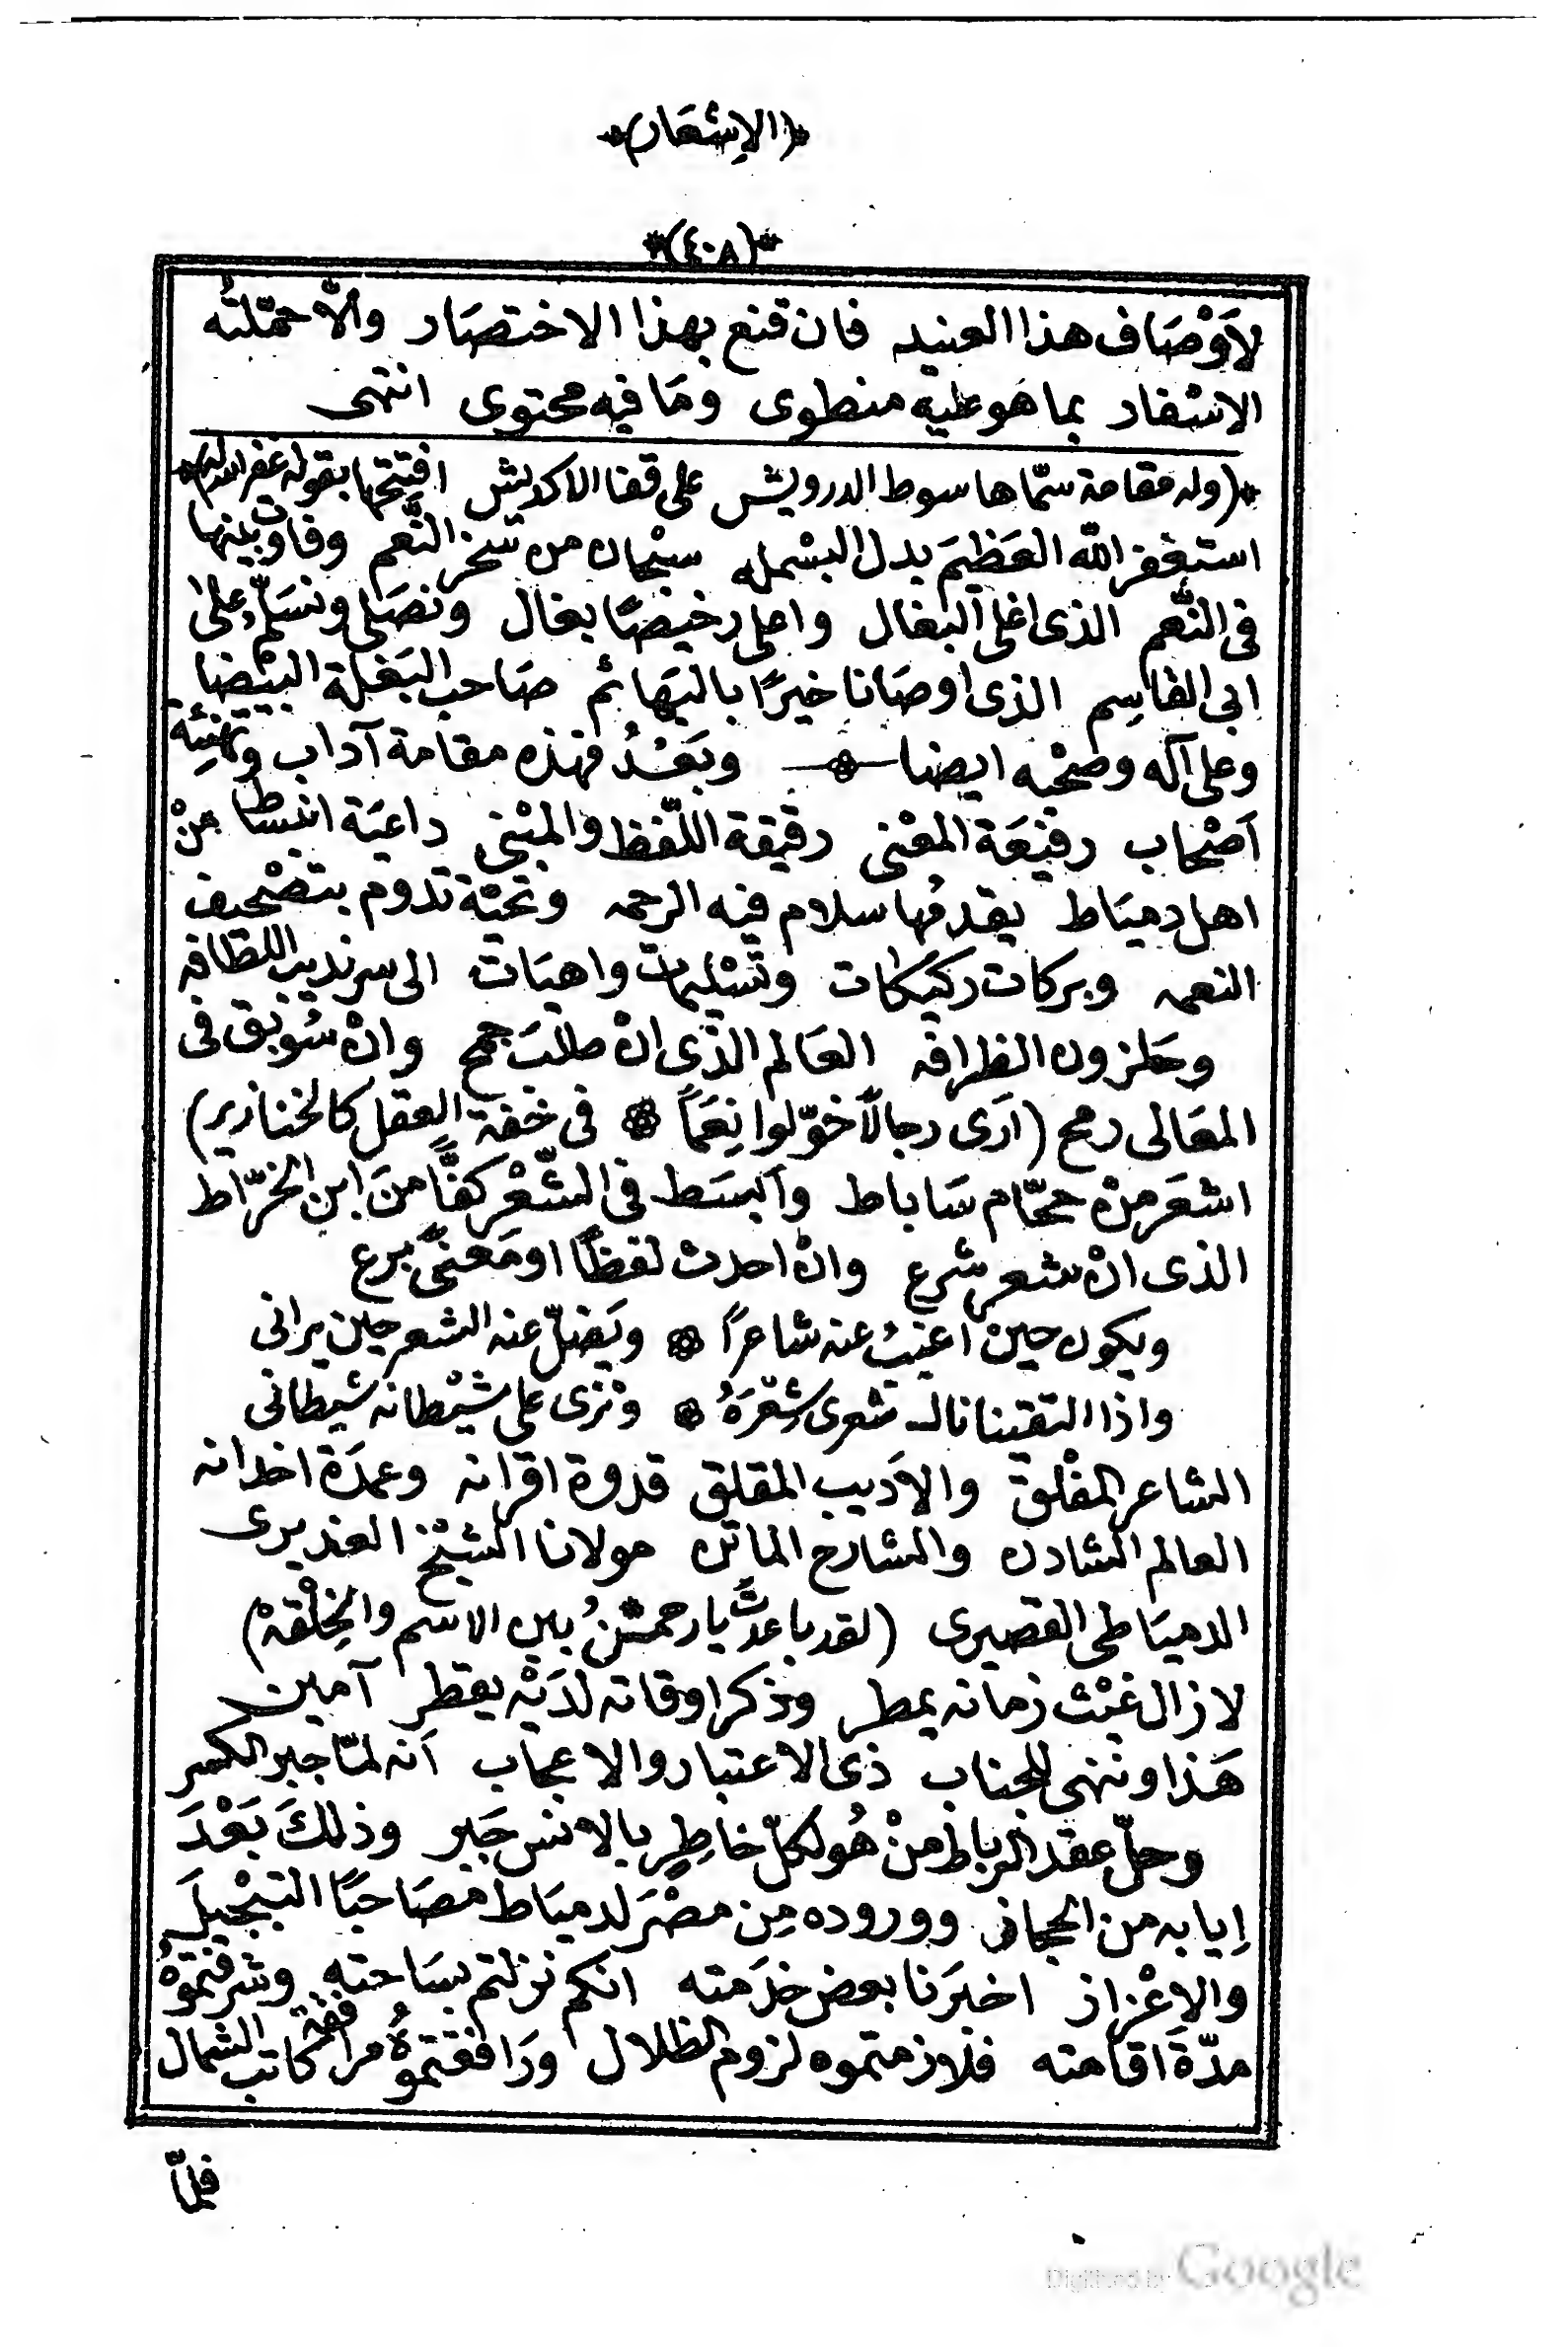 ﴿الإشعار﴾
﴿٤٠٨﴾
لأَوْصَاف هذا العنيد فان قنع بهذا الاختصَار والاّ حمّلتُه
الاسْفار بما هو عليه منطوى ومَا فيه محتوى انتهى
﴿وله مقامة سمّاها سوط الدرويش على قفا الاكديش افتتحها بقوله غفر الله له﴾
استغفر الله العَظِيمَ بدل البسْمله سبْحان من سَخر النَّعم وفاوت بينها
فى النِّعم الذى اغلى البغال واعلى رخيصًا بغال ونصَلى ونسَلّم على
ابى القاسِم الذى اوصَانا خيرًا بالبهَائم صَاحب البَغلة البيْضا
وعلى آله وصحْبه ايضا وبَعْدُ فهذه مقامة آداب وتهْنِئة
اَصْحاب رفيْعَة المعْنى رقيقة اللّفظ والمبْنى داعيَة انبسَاط مِنْ
اهل دميَاط يقدمُها سلام فيه الرحمه وتحيّة تدوم بتصْحيف
النعمه وبركات ركيكات وتسْليمات واهيَات الى سرنديب اللطافه
وحَلزون الظرافه العَالم الذى انْ طلبَ جمح وانْ سُوبق فى
المعَالى رمح (ارَى رجالاً خوّلوا نِعَماً ۞ فى خفة العقل كالخنازير)
اشعَر مِنْ حجّام سَاباط واَبسَط فى الشّعْر كفًّا منَ ابنِ الخرّاط
الذى انْ شعر شرع وانْ احدث لفظًا او مَعنىً برع
ويكون حينْ اغيبُ عنه شاعرًا ۞ ويَضلّ عنه الشعر حين يرانى
واذا التقينا نالـ شعرى شِعْرَهُ ۞ ونزى على شيْطانه شيْطانى
الشاعر المفْلق والاَديب المقلق قدوة اقرانه وعمدَة اخدانه
العالم الشادن والشارح الماتن مولانا الشيْخ الغديرى
الدميَاطى القصيرى (لقد باعدْتَ يا رحمٰنُ بين الاسم والخِلْقهْ)
لا زال غيْث زمانه يمطر وذكر اوقاته لدَيْه يقطر آمين
هَذا وننهى للجناب ذى الاعتبار والاعجاب اَنه لمّا جبر الكسر
وحلّ عقد الرباط منْ هُو لكلّ خاطِرٍ بالانس جَبر وذلكَ بَعْدَ
اِيابه من الحجاز ووروده مِن مصْرَ لدميَاط مصَاحبًا التبْجيلَ
والاعْزاز اخبَرنا بعض خدَمته انكم نزلتم بسَاحته وشرفتموُهُ
مدّةَ اقامته فلازمتموه لزوم الظلال ورَافقتموُهُ مرافقة كاتب الشمال
فلمّا
Digitized by Google